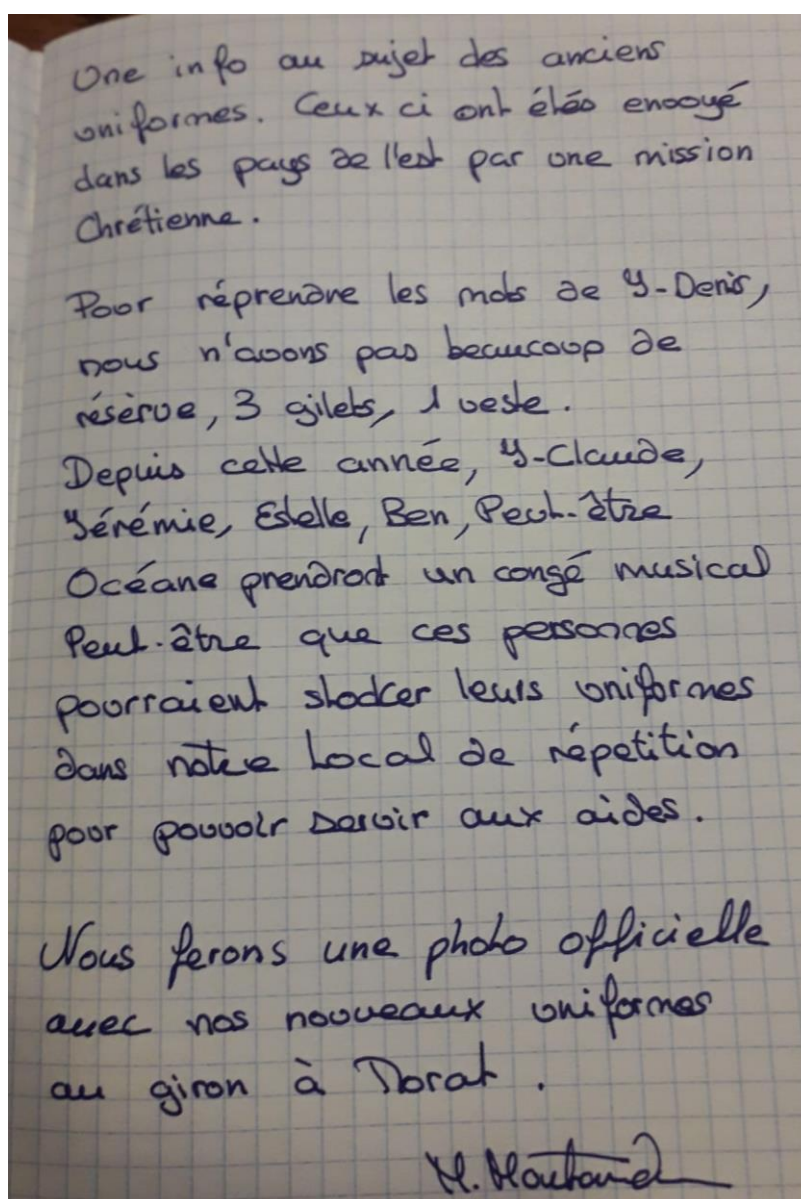 Une info au sujet des anciens
uniformes. Ceux ci ont étés envoyé
dans les pays de l'est par une mission
Chrétienne.
Pour réprendre les mots de J-Denis,
nous n'avons pas beaucoup de
résèrve, 3 gilets, 1 veste.
Depuis cette année, J-Claude,
Jérémie, Estelle, Ben, Peut-être
Océane prendront un congé musical
Peut-être que ces personnes
pourraient stocker leurs uniformes
dans notre Local de répetition
pour pouvoir servir aux aides.
Nous ferons une photo officielle
avec nos nouveaux uniformes
au giron à Morat.